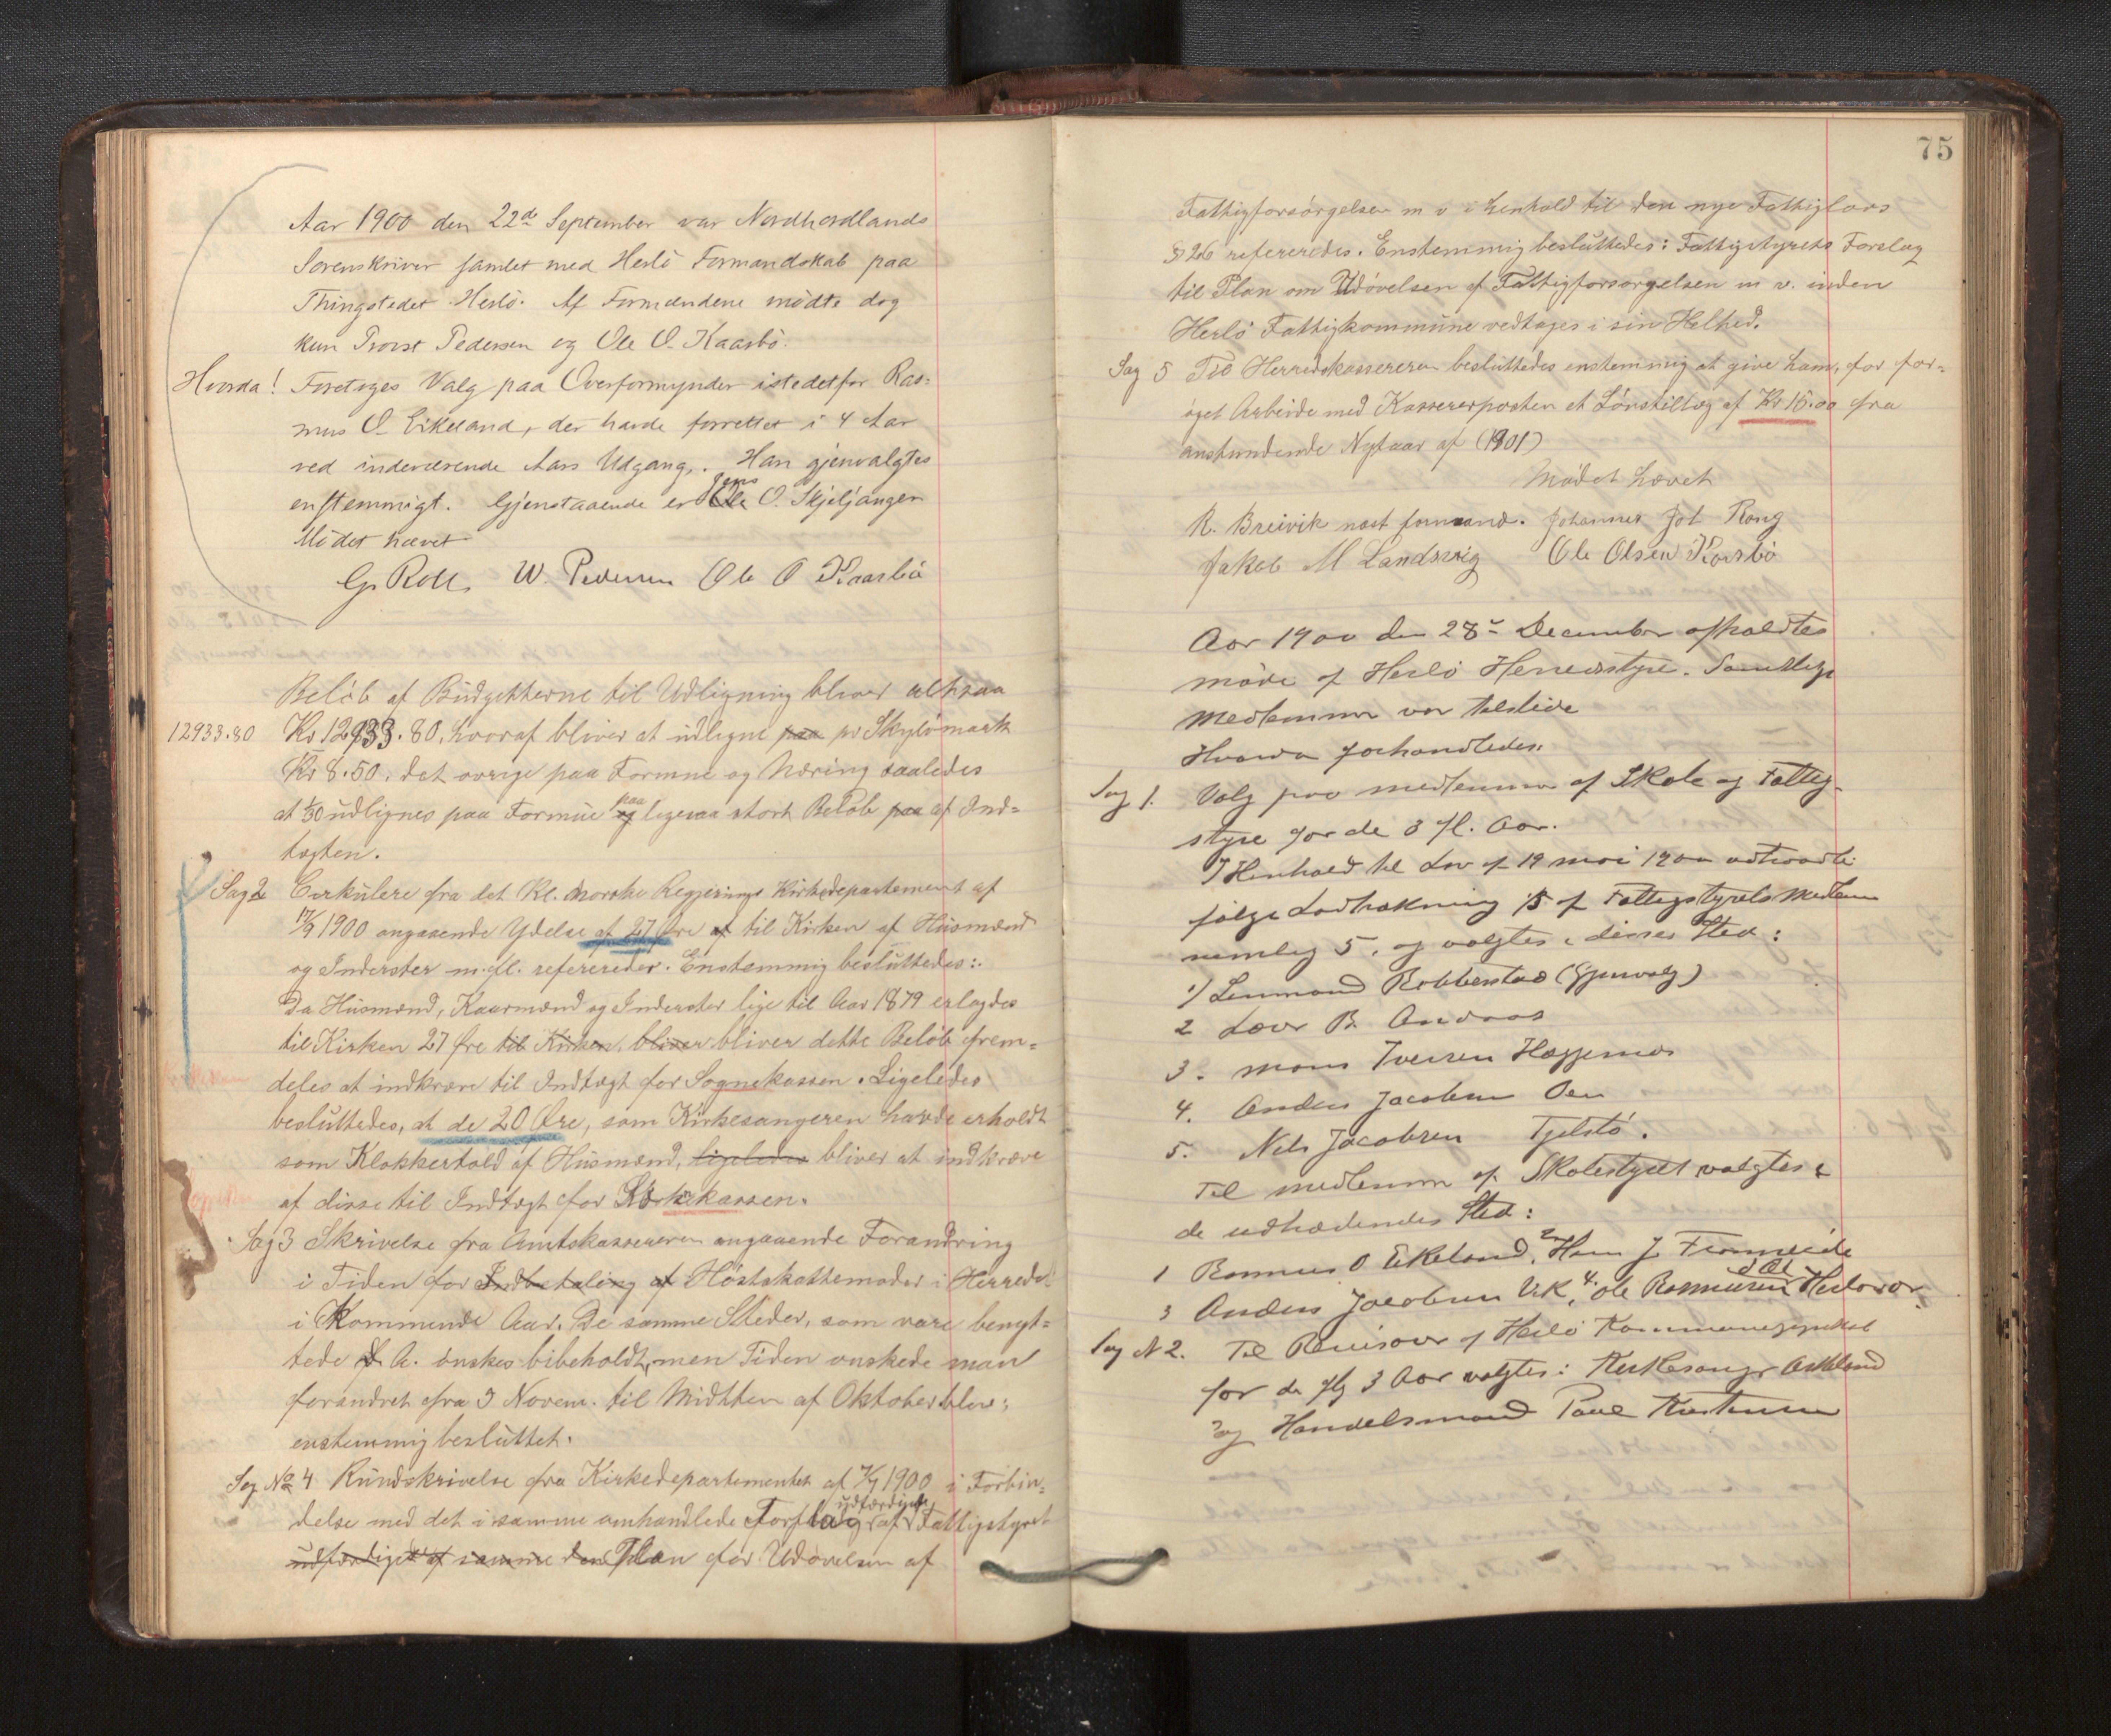 Aar 1900 den 22de September var Nordhordlands
Sorenskriver samlet med Herlö Formandskab paa
Thingstedet Herlö. Af Formændene mödte dog
kun Provst Pedersen og Ole O. Kaarbö.
Hvorda! Foretoges Valg paa Overformynder istedetfor Ras=
mus O. Eikeland, der havde forrettet i 4 Aar
ved indeværende Aars Udgang. Han gjenvalgtes
enstemmigt. Gjenstaaende er Ole Jens O. Skjeljanger
Mödet hævet
G. Roll W. Pedersen Ole O Kaarbö
Beløb af Budgetterne til Udligning bliver altsaa
12933.80 Kr 12933.80, hvoraf bliver at udligne paa pr Skyldmark
Kr 8.50, det øvrige paa Formue og Næring saaledes
at 1/30 udlignes paa Formue og paa ligesaa stort Beløb paa af Ind=
tægten.
Sag 2 Cirkulære fra det Kl. Norske Regjerings Kirkedepartement af
17/9 1900 angaaende Ydelse af 27 Øre af til Kirken af Husmænd
og Inderster m.fl. refereredes. Enstemmig besluttedes:
Da Husmænd, Kaarmænd og Inderster lige til Aar 1879 erlagdes
til Kirken 27 Øre til Kirken, bliver bliver dette Beløb frem=
deles at indkræve til Indtægt for Sognekassen. Ligeledes
besluttedes, at de 20 Øre, som Kirkesangeren havde erholdt
som Klokkertold af Husmænd, ligeledes bliver at indkræve
af disse til Indtægt for Kirkekassen.
Sag 3 Skrivelse fra Amtskassereren angaaende Forandring
i Tiden for Indbetaling af Høstskattemøder i Herredet
i Kommende Aar. De samme Steder, som vare benyt=
tede d. A. ønskes bibeholdt, men Tiden ønskede man
forandret fra 3 Novem. til Midtten af Oktober blev:
enstemmig besluttet.
Sag No 4 Rundskrivelse fra Kirkedepartementet af 7/9 1900 i Forbin=
delse med det i samme omhandlede Forslag udfærdiget af Fattigstyret
udfærdiget af samme den Plan for Udøvelsen af
75
Fattigforsørgelsen m v i henhold til den nye Fattiglovs
§ 26 refereredes. Enstemmig besluttedes: Fattigstyrets Forslag
til Plan om Udøvelsen af Fattigforsørgelsen m v. inden
Herlö Fattigkommune vedtages i sin Helhed.
Sag 5 Til Herredskassereren besluttedes enstemmig at give ham, for for=
øget Arbeide med Kassererposten et Lønstillæg af Kr 15.00 fra
anstundende Nytaar af (1901)
Mødet hævet
R. Breivik næst formand. Johannes Joh Rong
Jakob M Landsvig Ole Olsen Kaarbö
Aar 1900 den 28de December afholdtes
møde af Herlö Herredsstyre. Samtlige
medlemmer var tilstede
Hvorda forhandledes:
Sag 1. Valg paa medlemmer af Skole og Fattig-
styre for de 3 fl. Aar.
I Henhold til Lov af 19 mai 1900 udtraadte
følge Lodtrækning 1/3 af Fattigstyrets Medlem
nemlig 5, og valgtes i disses Sted:
1) Lensmand Rebbestad (Gjenvalg)
2 Lars B. Andaas
3. Mons Iversen Hæggernes
4. Anders Jacobsen Oen
5. Nels Jacobsen Tjelstø.
Til medlemm af Skolestyret valgtes i
de udtrædendes Sted:
1 Rasmus O Eikeland, 2. Hans J. Fromreide
3 Anders Jacobsen Vik, 4. Ole Rasmussen d Æl Herlovær
Sag N 2. Til Revisorer af Herlö Kommuneregnskab
for de flg 3 Aar valgtes: Kirkesanger Askeland
og Handelsmand Paul Kristensen